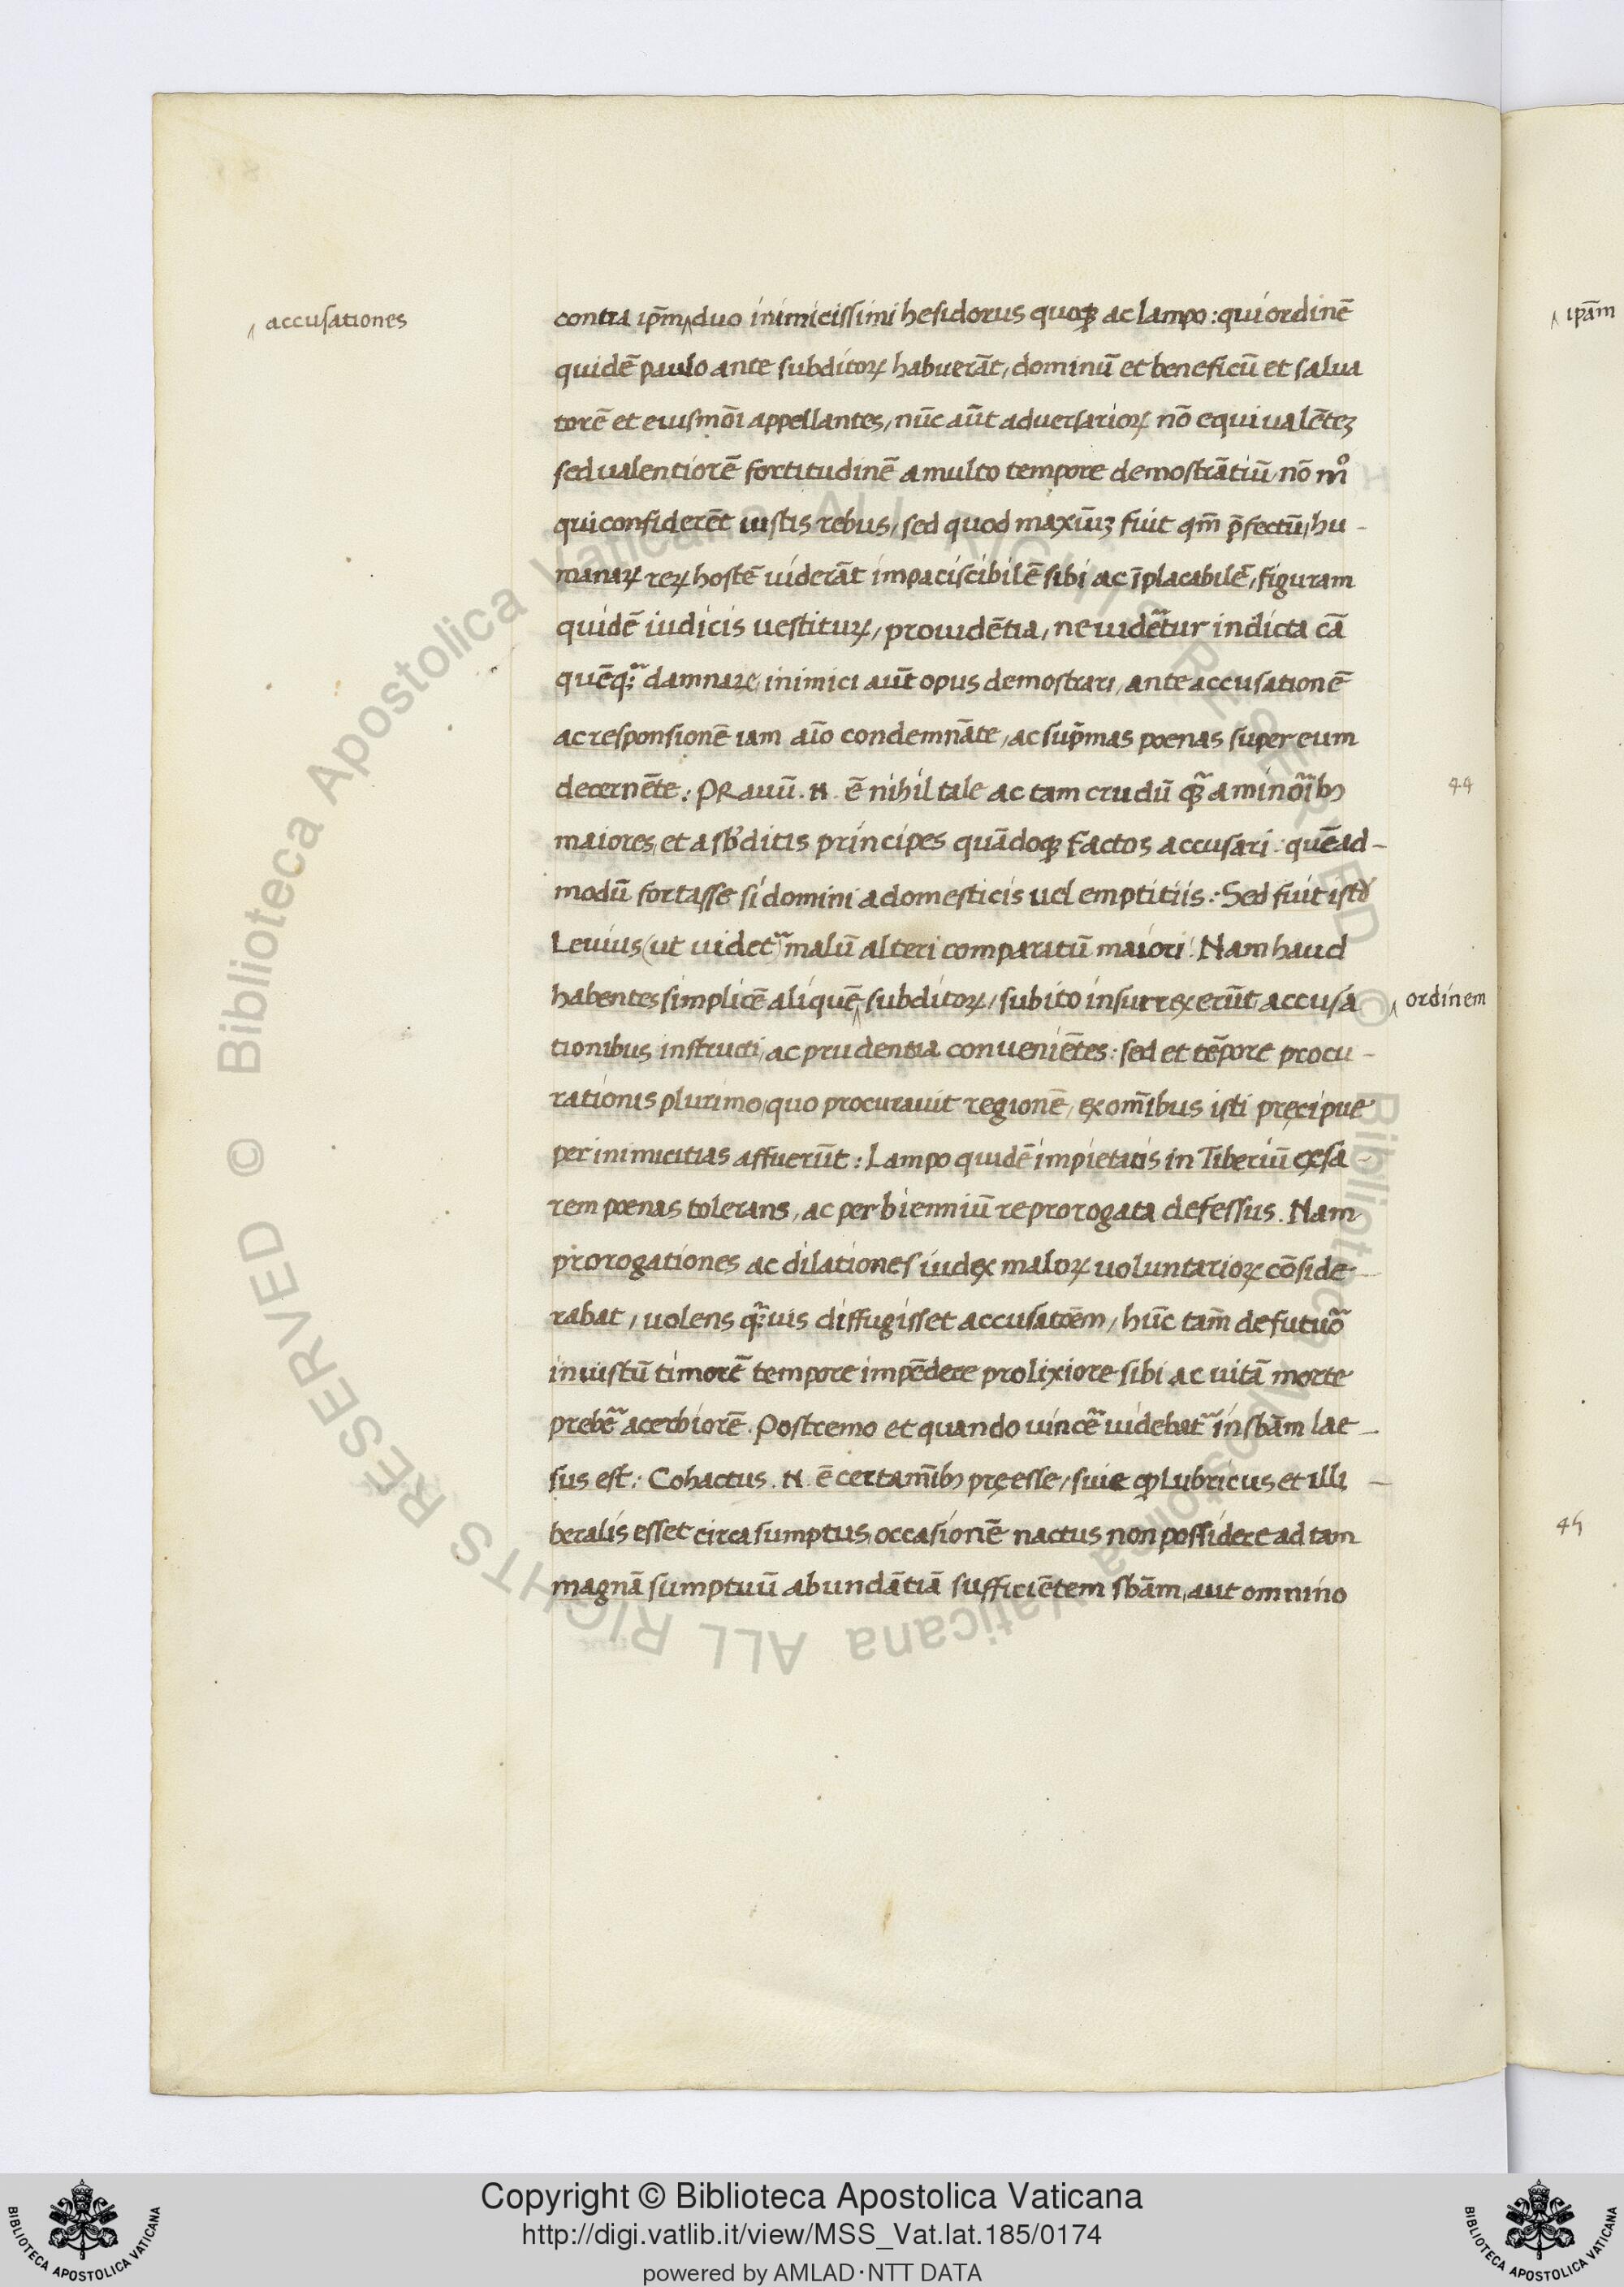 ‸ accusationes
contra ip̄m‸duo inimicissimi hesidorus quoqꝫ ac lampo: qui ordinē
quidē paulo ante subditoꝝ habuerāt, dominū et beneficū et salua
torē et eiusmōi appellantes, nūc aūt aduersarioꝝ nō equiualēteꝫ
sed ualentiorē fortitudinē a multo tempore demostrātiū, nō mͦ
qui confiderēt iustis rebus, sed quod maxiūꝫ fuit qm̄ p̄fectū, hu-
manaꝝ reꝝ hostē uiderāt impaciscibilē sibi ac īplacabilē, figuram
quidē iudicis uestituꝝ, prouidētia, ne uidēt̃ur indicta cā
quēqꝫ̃ damnare, inimici aūt opus demostrari, ante accusationē
ac responsionē iam aīo condemnāte, ac sup̄mas poenas super eum
decernēte: PRauū .N. ē nihil tale ac tam crudū qꝫ̃ a minor̃ibꝫ
maiores, et a sb̓ditis principes quādoqꝫ factos accusari: quēad-
modū fortasse si domini a domesticis uel emptitiis: Sed fuit istđ
Leuius (ut uidet᷑) malū alteri comparatū maiori! Nam haud
habentes simplicē aliquē‸subditoꝝ, subito insurrexerūt accusa
tionibus instructi, ac prudentia conueniētes: sed et tēpore procu-
rationis plurimo, quo procurauit regionē, ex om̄ibus isti pręcipue
per inimicitias affuerūt: Lampo quidē impietatis in Tiberiū cęsa-
rem poenas tolerans, ac per bienniū re prorogata defessus. Nam
prorogationes ac dilationes iudex maloꝝ uoluntarioꝝ cōside-
rabat, uolens qꝫ̃uis diffugisset accusatōem, hūc tam̄ de futuõ
iniustū timorē tempore impēdere prolixiore sibi ac uitā morte
prebẽ acerbiorē. Postremo et quando uincẽ uidebat᷑ in sbām lae-
sus est: Cohactus .N. ē certam̄ibꝫ pręesse, siue ꝙ lubricus et illi-
beralis esset circa sumptus, occasionē nactus non possidere ad tam
magnā sumptuū abundātiā sufficiētem sbām, aut omnino
44
‸ ordinem
‸ ip̄am
45
Copyright © Biblioteca Apostolica Vaticana
http://digi.vatlib.it/view/MSS_Vat.lat.185/0174
powered by AMLAD·NTT DATA
BIBLIOTECA APOSTOLICA VATICANA
BIBLIOTECA APOSTOLICA VATICANA
© Biblioteca Apostolica Vaticana ALL RIGHTS RESERVED
© Biblioteca Apostolica Vaticana ALL RIGHTS RESERVED